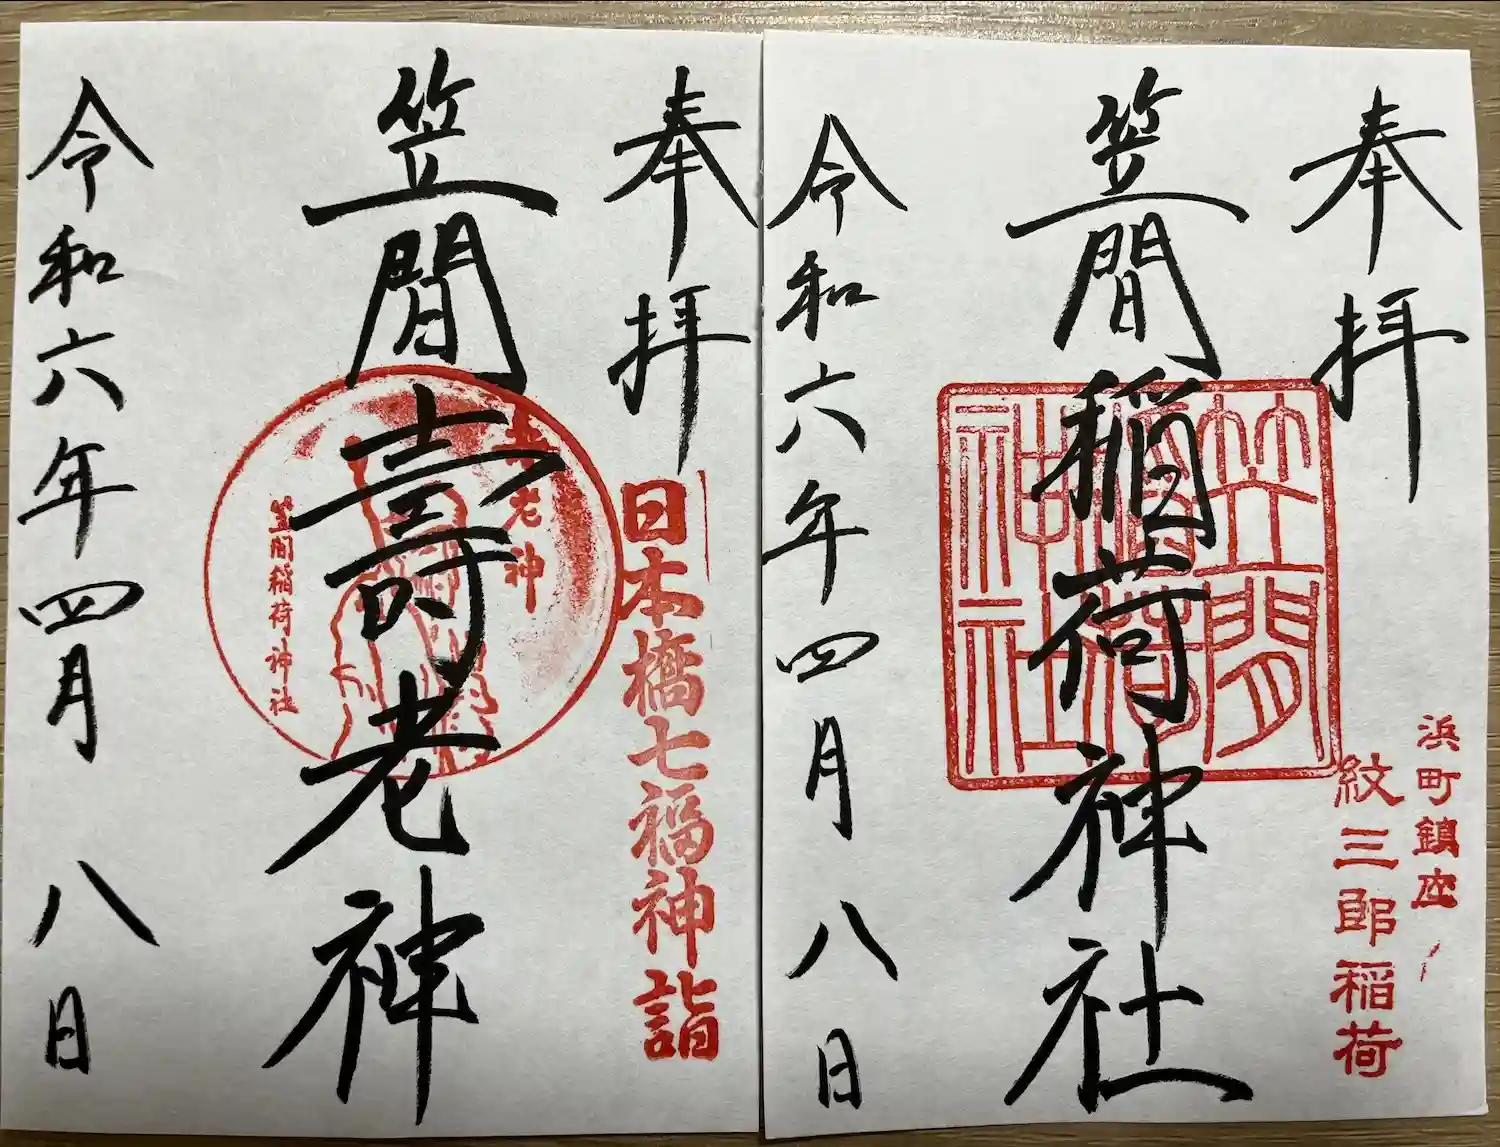 奉拝
浜町鎮座
紋三郎稲荷
笠間稲荷神社
笠間稲荷神社
令和六年四月八日
奉拝
日本橋七福神詣
笠間壽老神
壽老神
笠間稲荷神社
令和六年四月八日